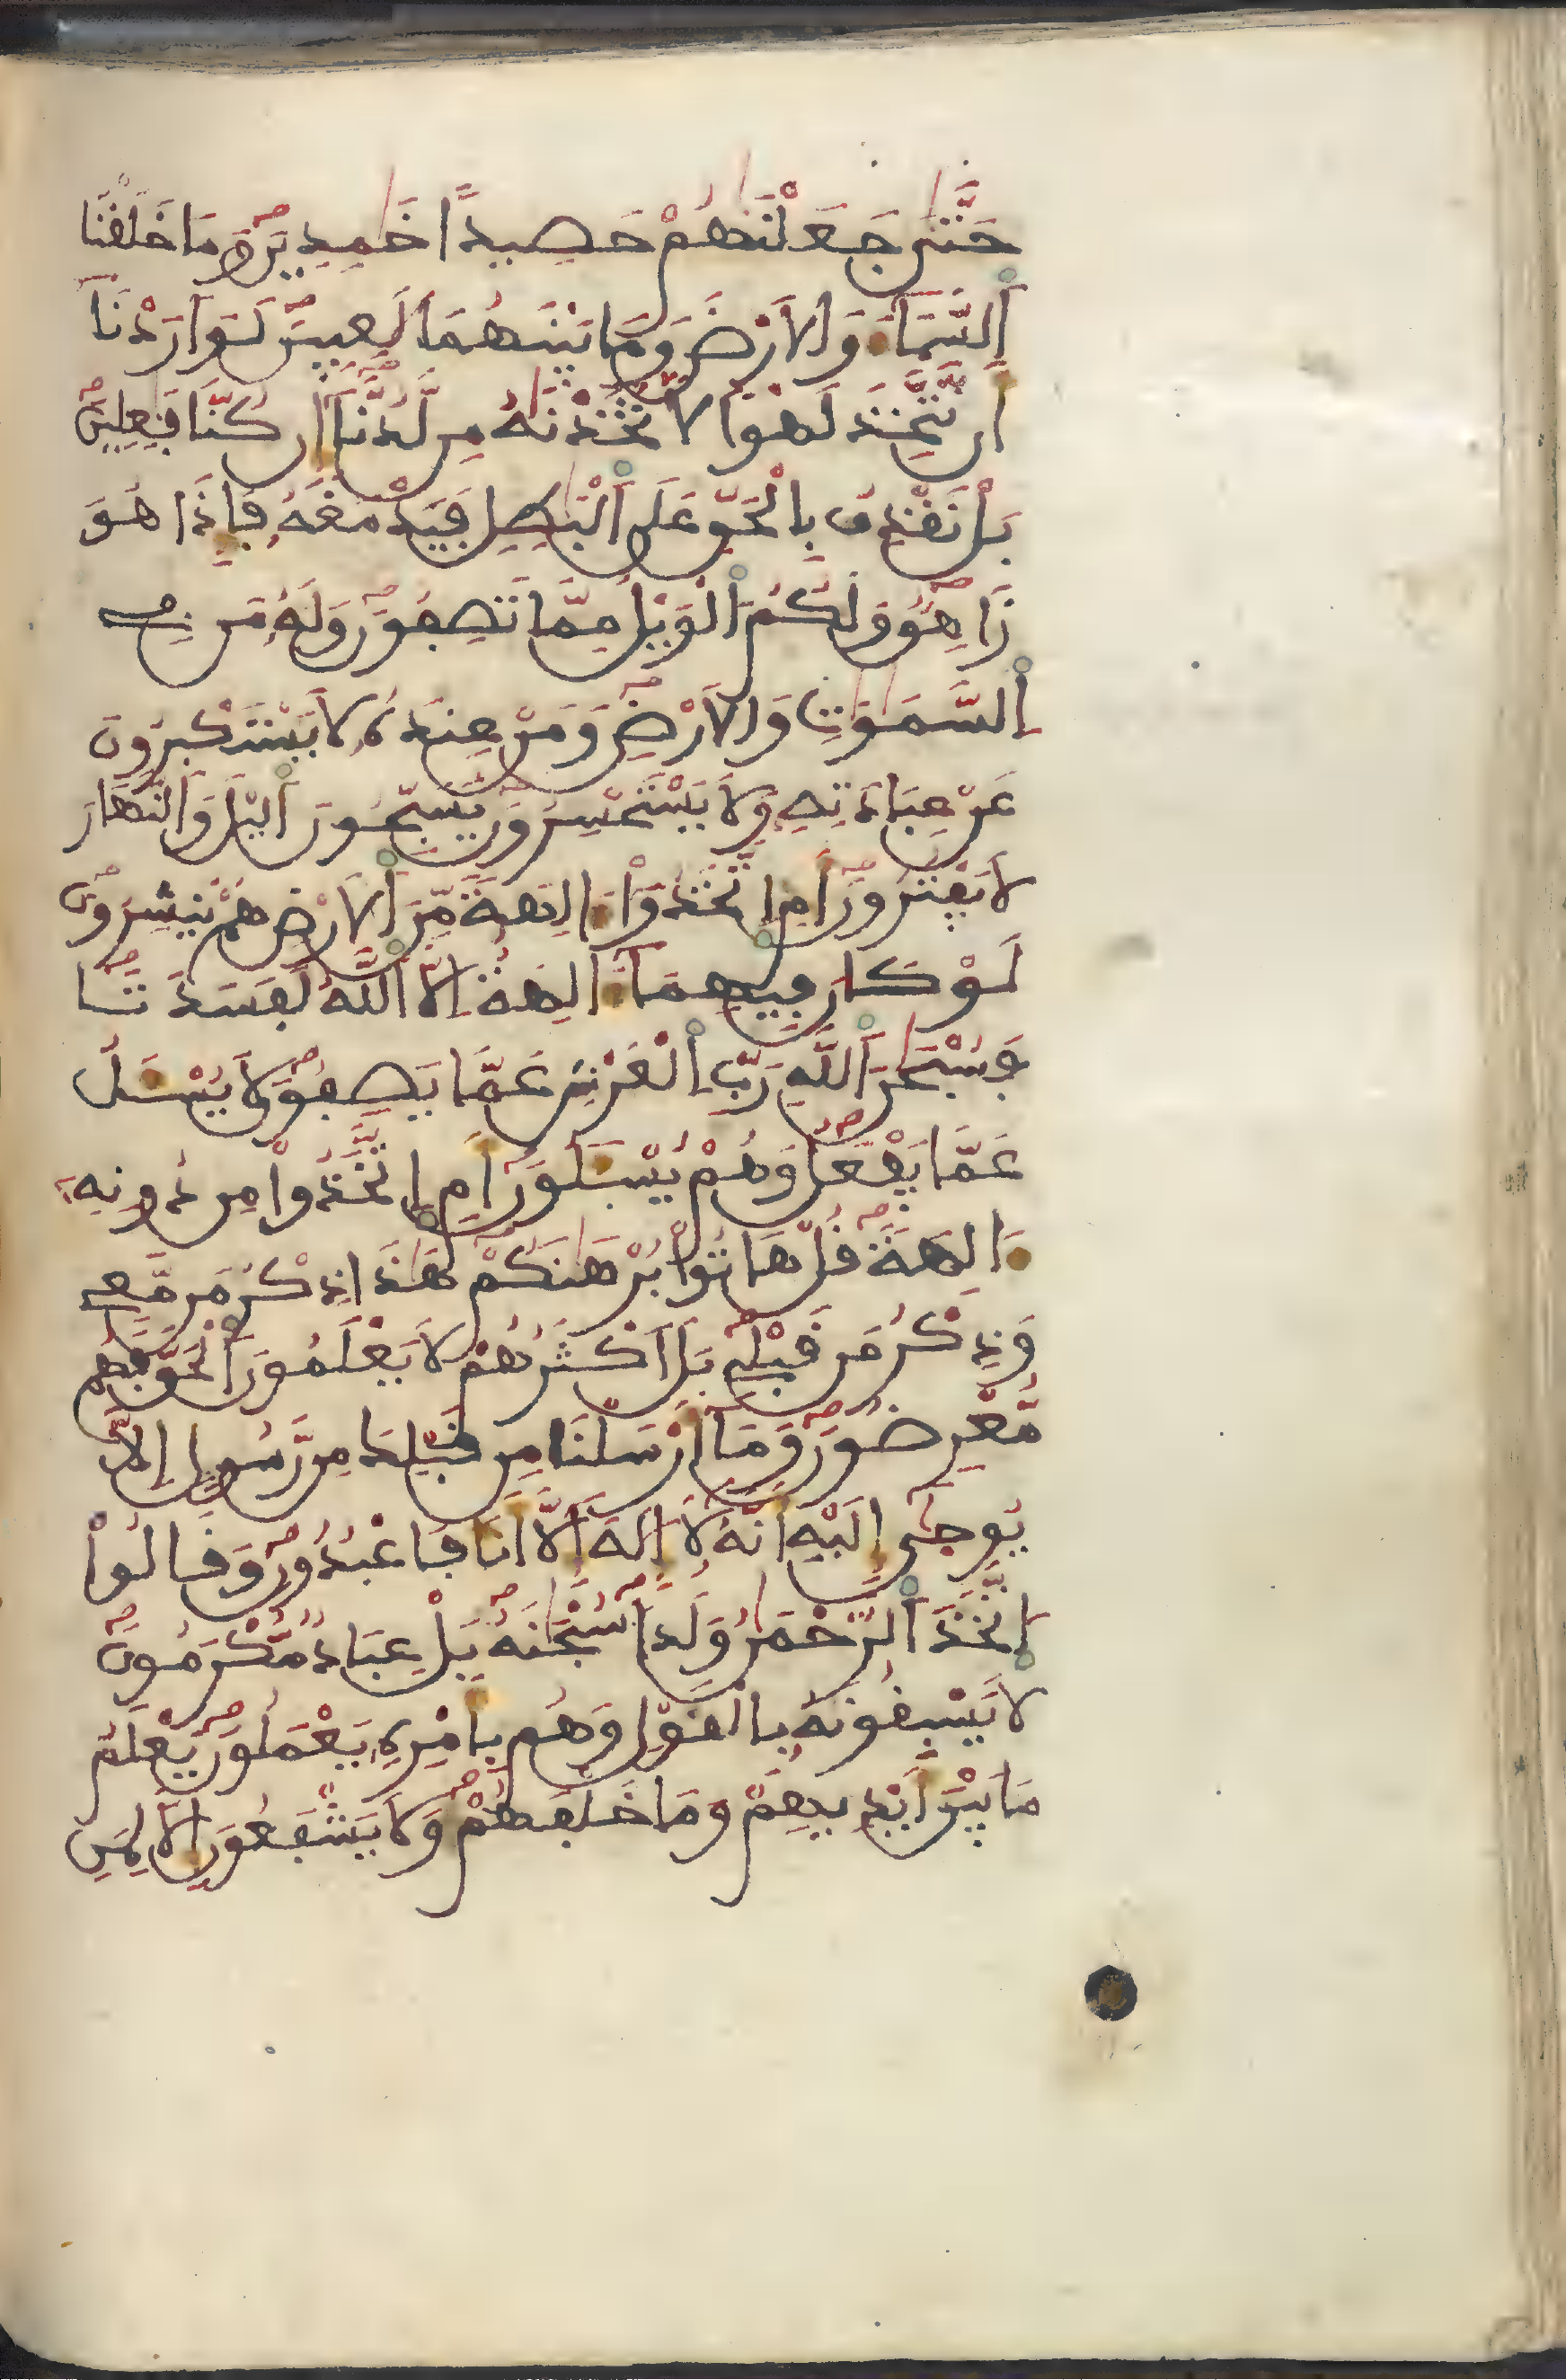 حَتَّىٰ جَعَلْنَٰهُمْ حَصِيداً خَٰمِدِينَ وَمَا خَلَقْنَا
اَلسَّمَآءَ وَالَارْضَ وَمَا بَيْنَهُمَا لَٰعِبِينَ لَوَ اَرَدْنَآ
أَن نَّتَّخِذَ لَهْواً لَّاتَّخَذْنَٰهُ مِن لَّدُنَّآ إِن كُنَّا فَٰعِلِينَ
بَلْ نَقْذِفُ بِالْحَقِّ عَلَى اَلْبَٰطِلِ فَيَدْمَغُهُۥ فَإِذَا هُوَ
زَاهِقٌ وَلَكُمُ اَلْوَيْلُ مِمَّا تَصِفُونَ وَلَهُۥ مَن فِے
اِلسَّمَٰوَٰتِ وَالَارْضِ وَمَنْ عِندَهُۥ لَا يَسْتَكْبِرُونَ
عَنْ عِبَادَتِهِۦ وَلَا يَسْتَحْسِرُونَ يُسَبِّحُونَ اَليْلَ وَالنَّهَارَ
لَا يَفْتُرُونَ أَمِ اِتَّخَذُوٓاْ ءَالِهَةً مِّنَ اَلَارْضِ هُمْ يُنشِرُونَ
لَوْ كَانَ فِيهِمَآ ءَالِهَةٌ اِلَّا اَللَّهُ لَفَسَدَتَا
فَسُبْحَٰنَ اَللَّهِ رَبِّ اِلْعَرْشِ عَمَّا يَصِفُونَ لَا يُسْـَٔلُ
عَمَّا يَفْعَلُ وَهُمْ يُسْـَٔلُونَ أَمِ اِتَّخَذُواْ مِن دُونِهِۦٓ
ءَالِهَةً قُلْ هَاتُواْ بُرْهَٰنَكُمْ هَٰذَا ذِكْرُ مَن مَّعِے
وَذِكْرُ مَن قَبْلِے بَلَ اَكْثَرُهُمْ لَا يَعْلَمُونَ اَلْحَقَّ فَهُم
مُّعْرِضُونَ وَمَآ أَرْسَلْنَا مِن قَبْلِكَ مِن رَّسُولٍ اِلَّا
يُوحَىٰٓ إِلَيْهِ أَنَّهُۥ لَآ إِلَٰهَ إِلَّآ أَنَا فَاعْبُدُونِ وَقَالُواْ
اُتَّخَذَ اَلرَّحْمَٰنُ وَلَداً سُبْحَٰنَهُۥ بَلْ عِبَادٌ مُّكْرَمُونَ
لَا يَسْبِقُونَهُۥ بِالْقَوْلِ وَهُم بِأَمْرِهِۦ يَعْمَلُونَ يَعْلَمُ
مَا بَيْنَ أَيْدِيهِمْ وَمَا خَلْفَهُمْ وَلَا يَشْفَعُونَ إِلَّا لِمَنِ